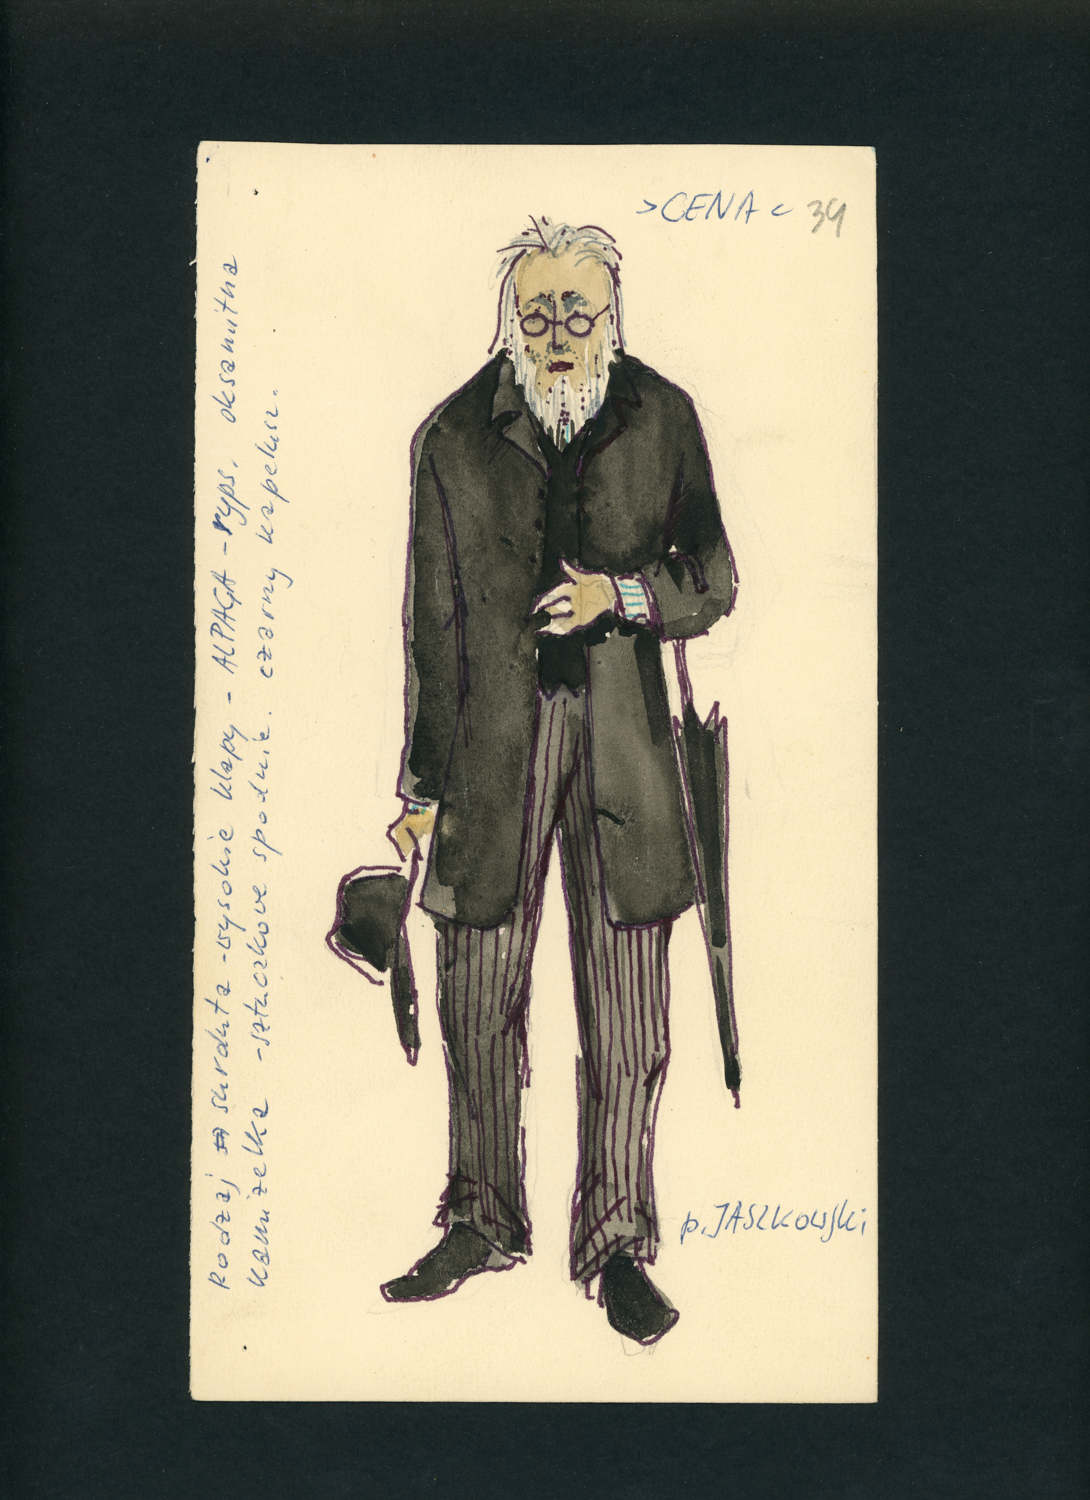 >CENA< 39
Rodzaj surduta - wysokie klapy - ALPAGA - ryps. oksamitna
kamizelka - sztuczkowe spodnie. czarny kapelusz.
p. JASZKOWSKI